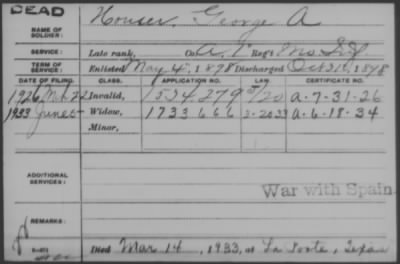 DEAD
NAME OF SOLDIER: Houser, George A
SERVICE: Late rank, Co. A, 1" Reg't Mo. Inf
TERM OF SERVICE: Enlisted May 4, 1898 Discharged Oct 31, 1898
DATE OF FILING. CLASS. APPLICATION NO. LAW. CERTIFICATE NO.
1926 Mch 22 Invalid, 1534279 5/20 A-7-31-26
1933 June 5 Widow, 1733666 3-20-33 A-6-18-34
Minor,
ADDITIONAL SERVICES:
War with Spain
REMARKS:
Died Mar 14, 1933, at La Porte, Texas